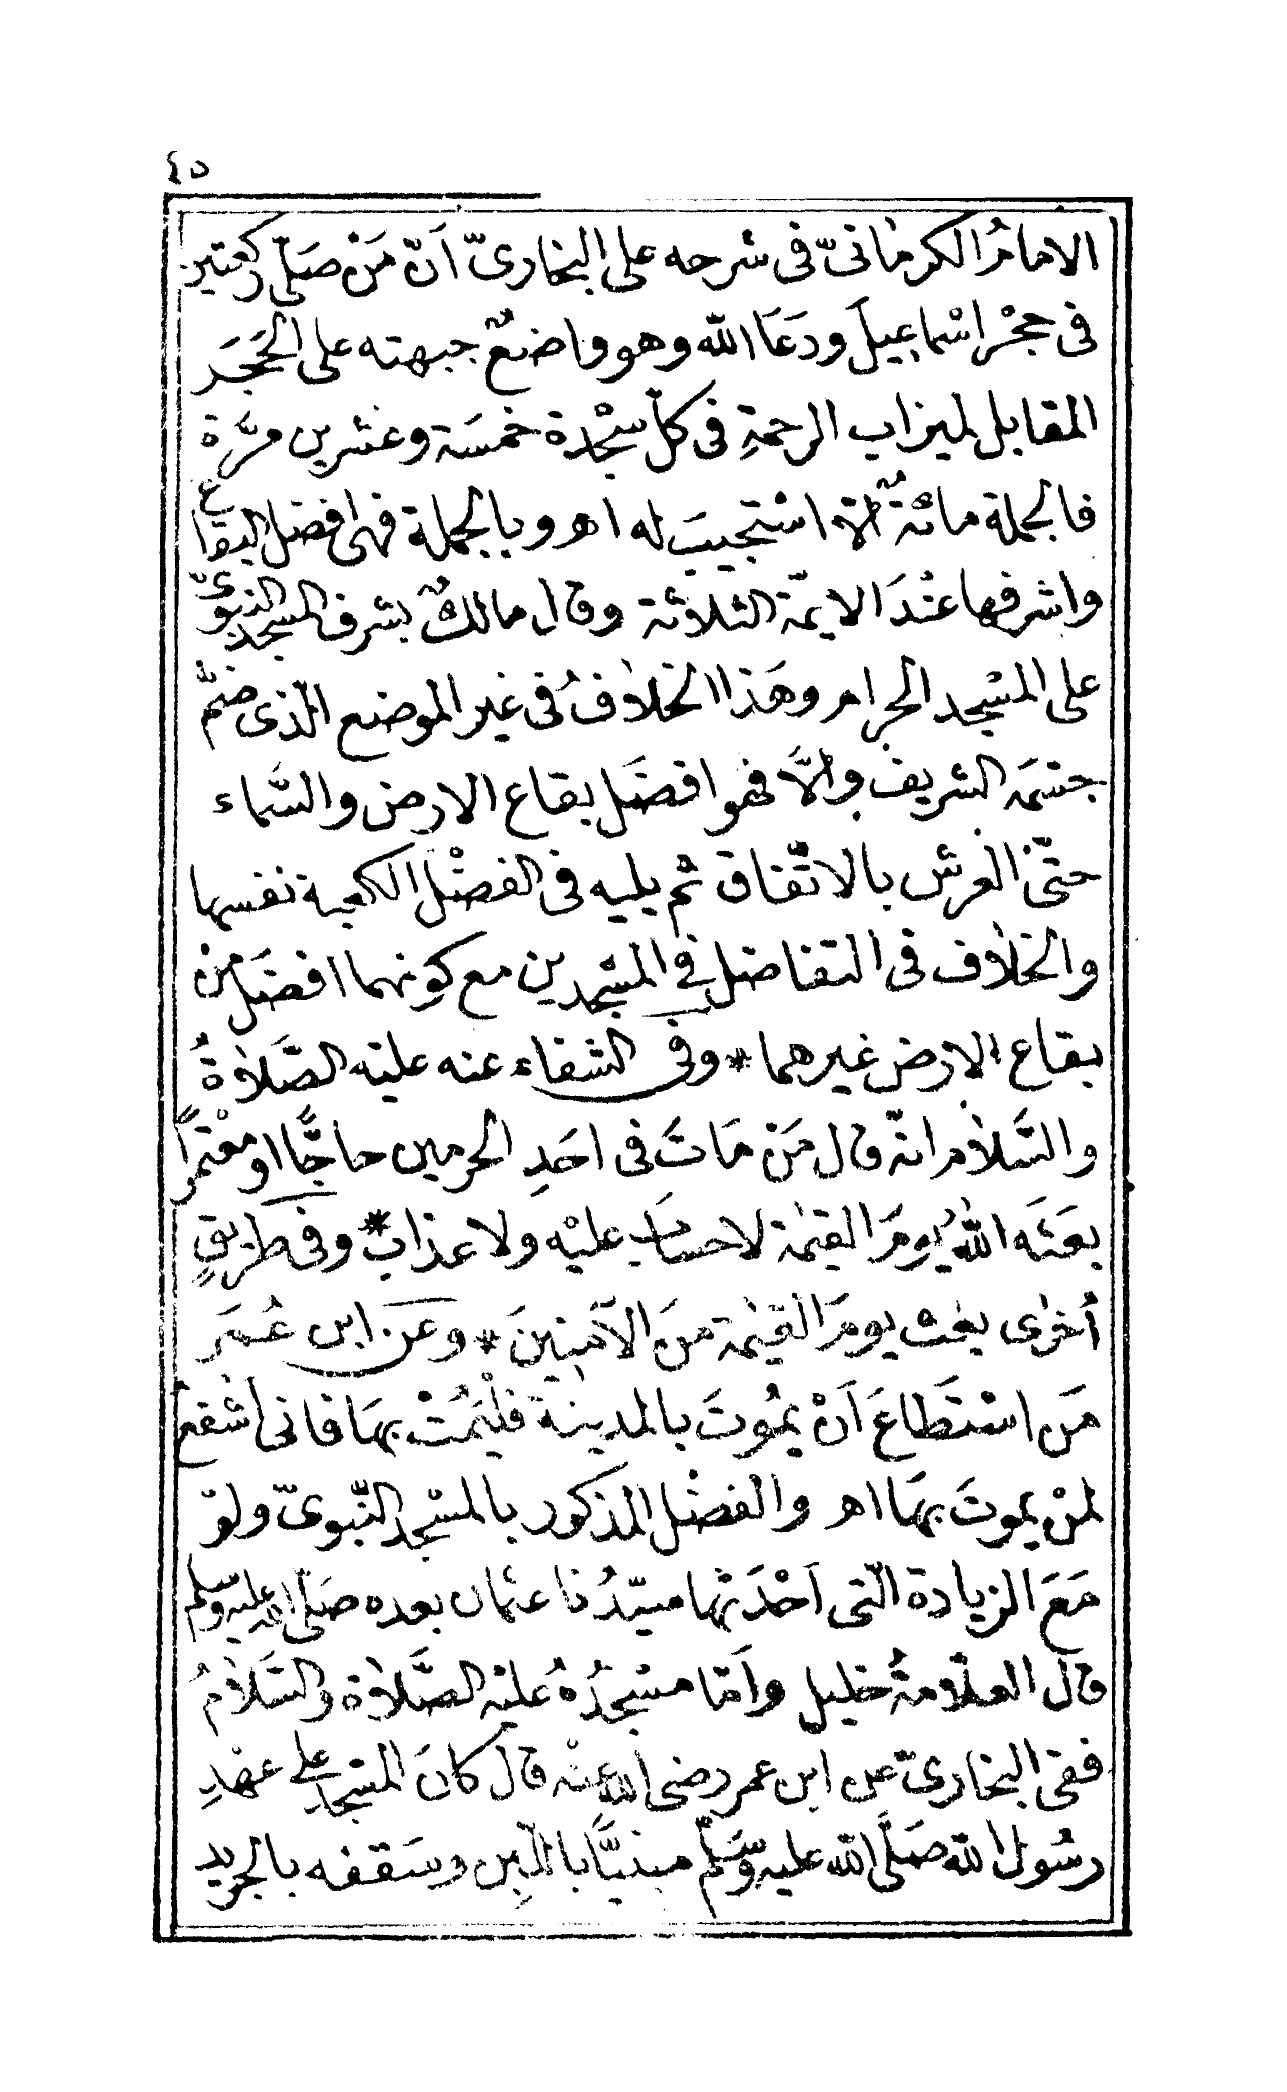 ٤٥
الامامُ الكرمانىّ فى شرحه على البخارىّ اَنّ مَنْ صَلّى ركعتين
فى حجْر اسْماعِيلَ ودَعَا الله وهو واضعٌ جبهته على الحَجَر
المقابل لميزاب الرحمةِ فى كلّ سجْدة خمسَة وعشرين مرَّة
فالجملة مائةٌ الاّ اسْتجيبَ له اهـ وبالجملة فهى افضل البقاع
واشرفها عنْدَ الايمّة الثلاثة وقال مالكٌ بشرف المسجد النبوىّ
على المسْجد الحرام وهَذا الخلافُ فى غير الموضع الّذى ضمَّ
جسْمَه الشريفَ والاَّ فهو افضَل بقاع الارض والسَّماء
حتّى العرش بالاتّفاق ثم يليه فى الفضْل الكعبة نفسها
والخلاف فى التفاضل فى المسْجدين مع كونهما افضَل من
بقاع الارض غيرهما * وفى الشفاء عنه عليه الصَّلاةُ
والسَّلام انّه قال مَنْ مَاتَ فى احَدِ الحرمين حاجًّا او معْتمرًا
بعَثَه اللهُ يومَ القيٰمة لا حسابَ عليْه ولا عذاب * وفى طريقٍ
أخرى بعث يومَ القيٰمة منَ الآمنِينَ * وعن ابن عُمَر
مَن اسْتَطاعَ اَنْ يمُوتَ بالمدينة فلْيَمُتْ بهَا فانى اشْفعُ
لمنْ يموتَ بهَا اهـ والفضْل المذكور بالمسْجد النّبوىّ ولوْ
مَعَ الزيادة الّتى اَحْدَثها سيّدُنا عثمان بعده صَلّى الله عليه وسلم
قال العلّامةُ خليل وامّا مسْجدُهُ عليْه الصَّلاة والسَّلامُ
ففى البخارىّ عن ابن عمر رضى الله عنْه قال كانَ المسْجد على عهْدِ
رسُول الله صَلَّى الله عليه وَسَلّم مبنيًّا باللّبِن وسَقفه بالجريد